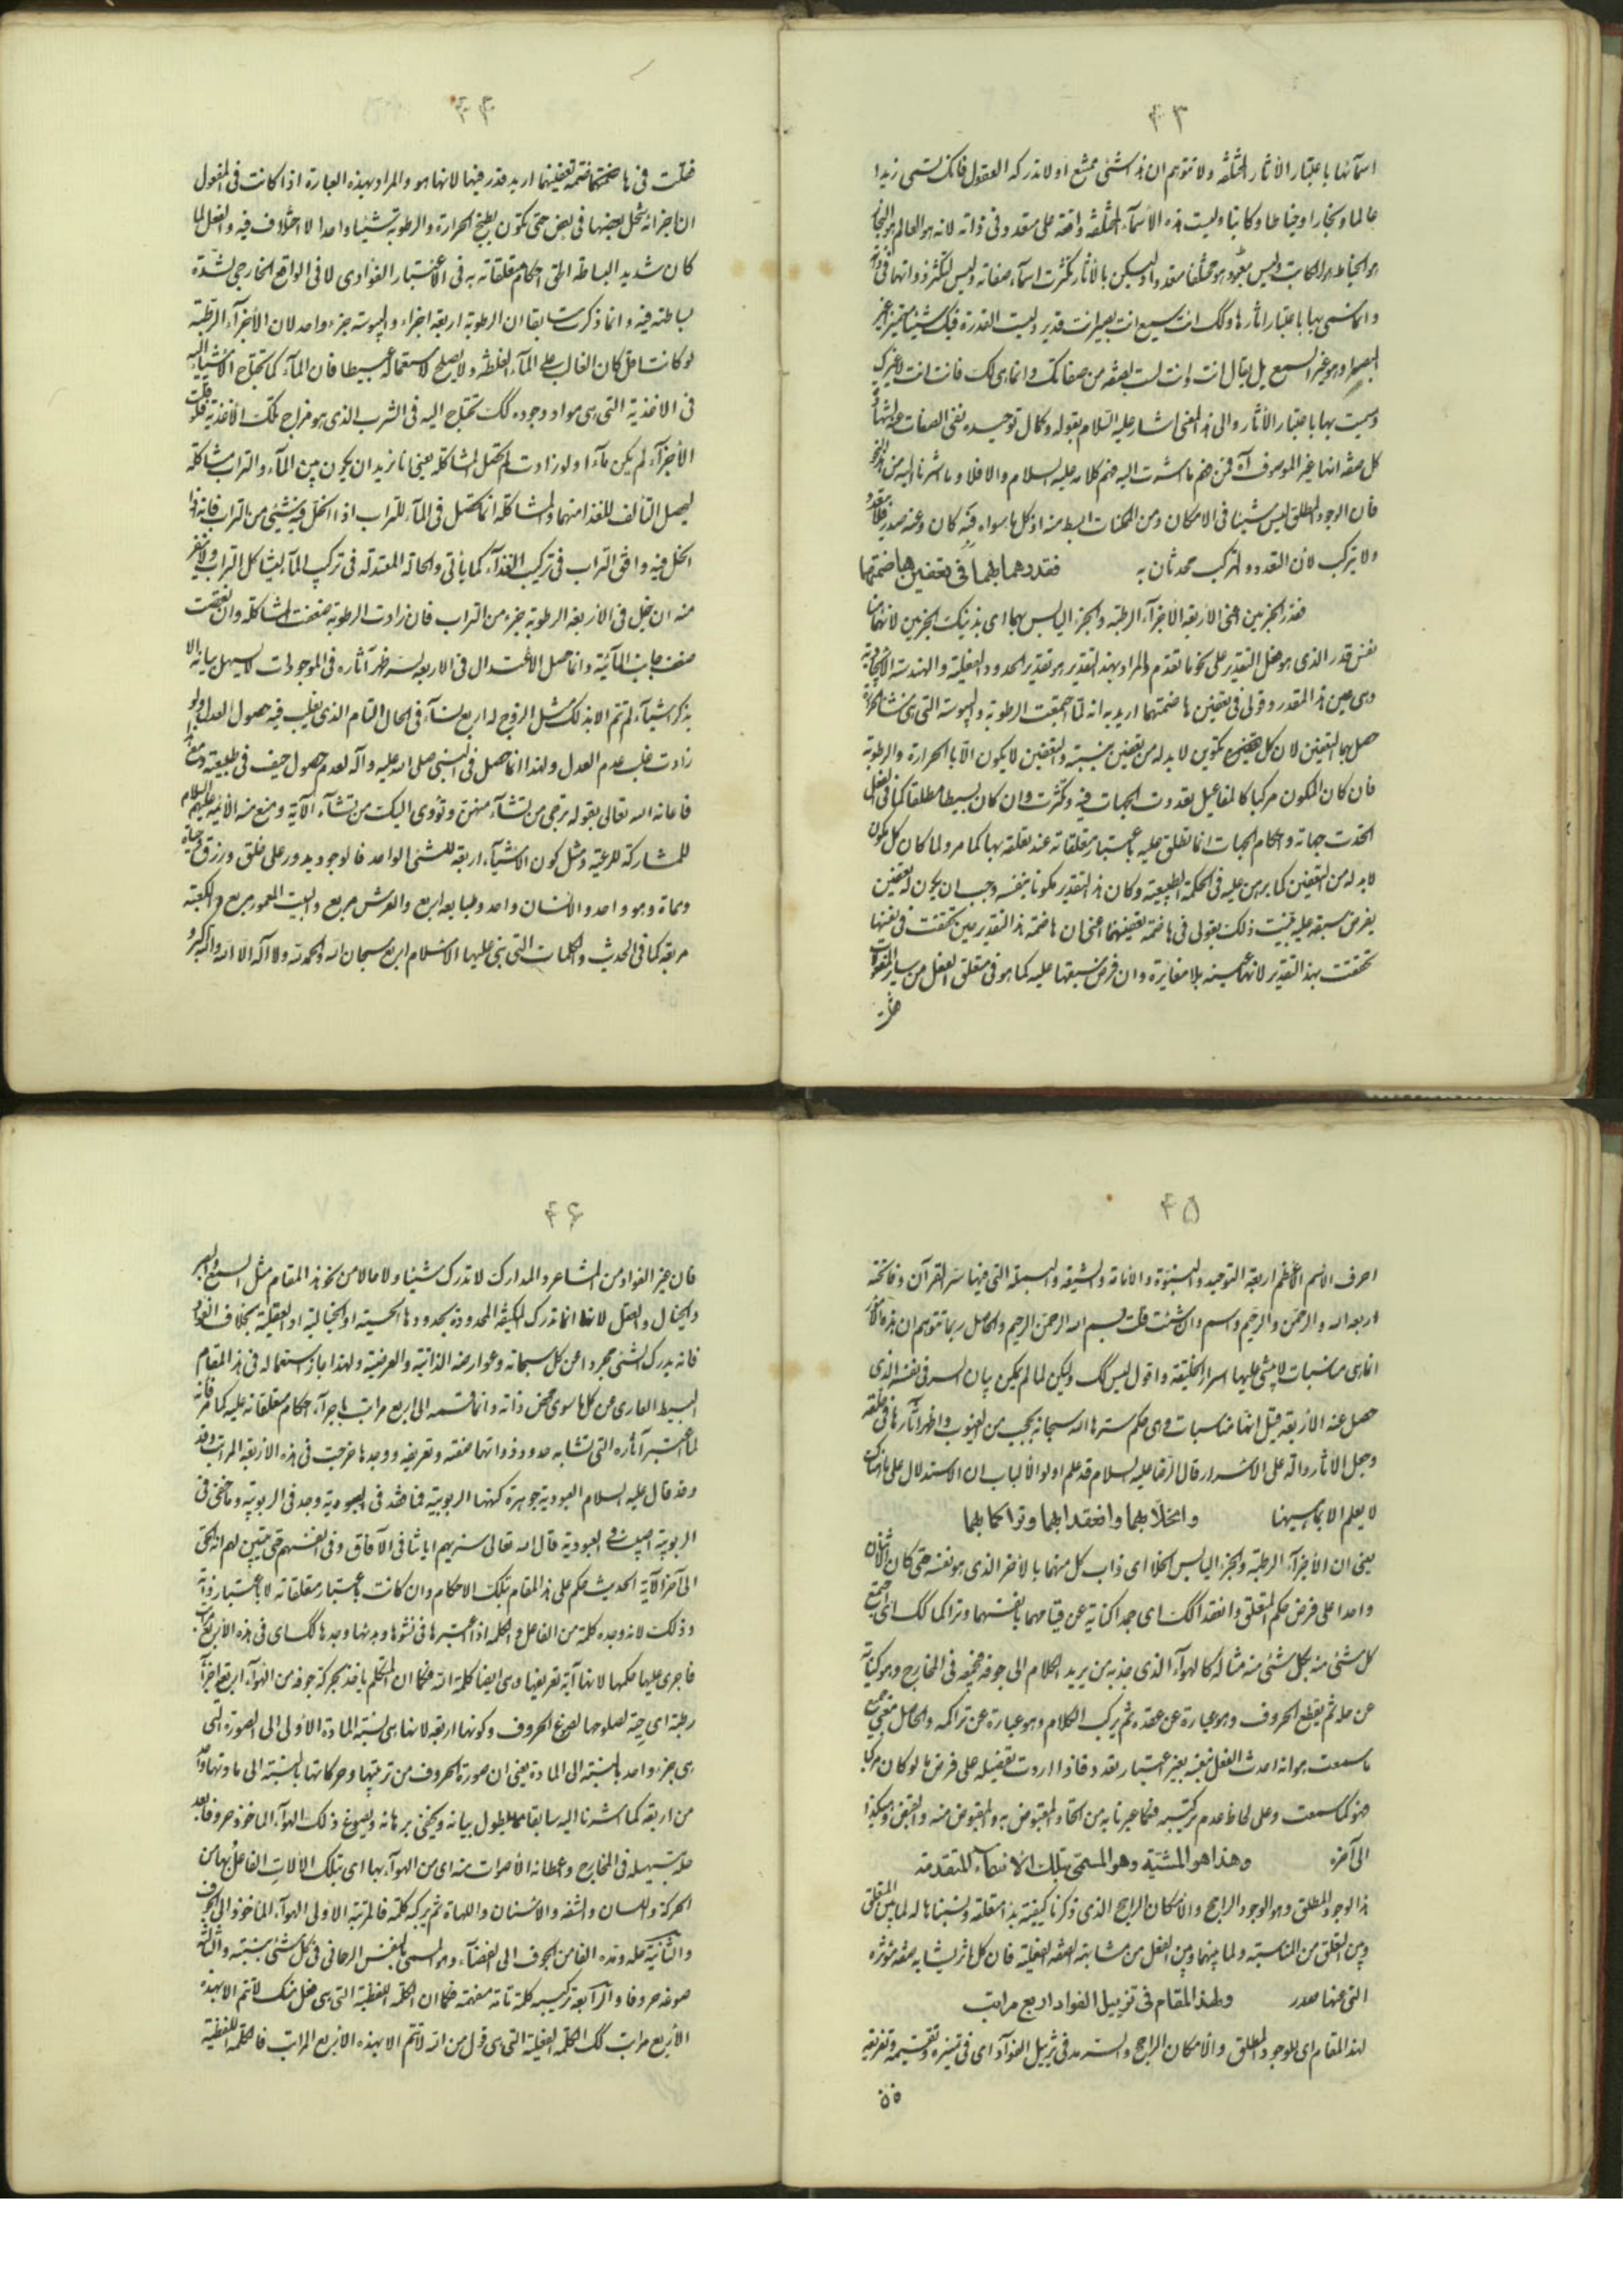 ۴۳
اسمآئها باعتبار الآثار المختلفة ولا تتوهم ان هذا شئ ممتنع او لا تدركه العقول فانك تسمى زيدا
عالما ونجارا وخياطا وكاتبا وليست هذه الأسمآء المختلفة واقعة على متعدد فى ذاته لانه هو العالم هو النجار
هو الخياط هو الكاتب وليس
وانما تسمى بها باعتبار اثارها وكك انت سميع انت بصير انت قدير وليست القدرة فيك شيئا متميزا غير
البصر
وسميت بها باعتبار الآثار والى هذا المعنى اشار عليه السلام بقوله وكمال توحيده نفى الصفات عنه لشهادة
كل صفة انها غير الموصوف آه فمن فهم ما اشرت اليه فهم كلامه عليه السلام والا فلا
فان الوجود المطلق ليس شيئا فى الامكان ومن الممكنات ابسط منه اذ كل ما سواه فبه كان وعنه صدر فلا يتعدد
ولا يتركب لان التعدد والتركب محدثان به فقدرهما بهما فى تعفين هاضمتها
فقدر الجزءين اعنى الاربعة الاجزآء الرطبة والجزء اليابس بهما اى بذينك الجزءين لانهما من
نفس قدر الذى هو فعل التقدير على نحو ما تقدم والمراد بهذا التقدير هو تقدير الحدود الفعلية والهندسة الايجادية
وهى عين هذا المقدر وقولى فى تعفين هاضمتهما اريد به انه لما اجتمعت الرطوبة واليبوسة التى هى منشأ الحرارة
حصل بهما التعفين لان كل تكوين لا بد له من تعفين بنسبته والتعفين لا يكون الا بالحرارة والرطوبة
فان كان المكون مركبا كالمفاعيل تعددت الجهات فيه وتكثرت وان كان بسيطا مطلقا كما فى الفعل
اتحدت جهاته واحكام الجهات انما تطلق عليه باعتبار متعلقاته عند تعلقه بها كما مر ولما كان كل مكون
لا بد له من التعفين كما برهن عليه فى الحكمة الطبيعية وكان هذا التقدير مكونا بنفسه وجب ان يكون له تعفين
بفرض سبقه عليه فبينت ذلك بقولى فى هاضمة تعفينهما اعنى ان هاضمة هذا التقدير حين تحققت فى نفسها
تحققت بهذا التقدير لانها عينه بلا مغايرة وان فرض سبقها عليه كما هو فى متعلق الفعل من سائر المفعولات
فقلت
۴۴
فقلت فى هاضمة تعفينهما اريد قدر فيها لانها هو والمراد بهذه العبارة اذا كانت فى المفعول
ان اجزائه ينحل بعضها فى بعض حتى تكون بطبخ الحرارة والرطوبة شيئا واحدا لا اختلاف فيه والفعل لما
كان شديد البساطة الحق احكام متعلقاته به فى الاعتبار الفؤادى لا فى الواقع الخارجى لشدة
بساطته فيه وانما ذكرت سابقا ان الرطوبة اربعة اجزاء واليبوسة جزء واحد لان الأجزآء الرطبة
لو كانت اقل كان الغالب على المآء الغلظة ولا يصلح لاستعماله بسيطا فان المآء كما تحتاج الاشيآء اليه
فى الاغذية التى هى مواد وجوده كك تحتاج اليه فى الشرب الذى هو مزاج تلك الأغذية فلو قلت
الأجزآء لم يكن مآءا ولو زادت لم تحصل المشاكلة يعنى انا نريد ان يكون بين المآء والتراب مشاكلة
ليحصل التألف للغذا منهما والمشاكلة انما تحصل فى المآء للتراب اذا انحل فيه شئ من التراب فانه اذا
انحل فيه وافق التراب فى تركيب الغذآء كما يأتى والحالة المعتدلة فى تركيب المآء ليشاكل التراب ولا ينفر
منه ان ينحل فى الأربعة الرطوبة جزء من التراب فان زادت الرطوبة ضعفت المشاكلة وان نقصت
ضعف جانب المآئية وانما حصل الاعتدال فى الاربعة لسر ظهر آثاره فى الموجودات لا يسهل بيانه الا
بذكر اشيآء لم تتم الا بذلك مثل الزوج له اربع نسآء فى الحال التام الذى يغلب فيه حصول العدل ولو
زادت غلب عدم العدل ولهذا انما حصل فى النبى صلى الله عليه وآله لعدم حصول حيف فى طبيعته ومع هذا
فاعانه الله تعالى بقوله ترجى من تشآء منهن وتؤوى اليك من تشآء الآية ومنع منه الائمة عليهم السلام
للمشاركة للرعية ومثل كون الاشيآء اربعة للشئ الواحد فالوجود يدور على خلق ورزق وحياة
وممات وهو واحد والانسان واحد وطبايعه اربع والعرش مربع والبيت المعمور مربع والكعبة
مربعة كما فى الحديث والكلمات التى بنى عليها الاسلام اربع سبحان الله والحمد لله ولا اله الا الله والله اكبر
۴۵
احرف الاسم الاعظم اربعة التوحيد والنبوة والامامة والشيعة والبسملة التى فيها سر القرآن وفاتحته
اربعة الله والرحمن والرحيم واسم وان شئت قلت بسم الله الرحمن الرحيم والحاصل ربما تتوهم ان هذه الامور
انما هى مناسبات لا يبتنى عليها اسرار الخليقة واقول ليس كك ولكن لما لم يكن بيان السر فى نفسه الذى
حصل عنه الاربعة قيل انها مناسبات وهى حكم سترها الله سبحانه بحجب من الغيوب واظهر آثارها فى خلقه
وجعل الآثار دالة على الاسرار قال الرضا عليه السلام قد علم اولو الألباب ان الاستدلال على ما هنالك
لا يعلم الا بما هيهنا وانحلا بهما وانعقدا بهما وتراكما بهما
يعنى ان الأجزآء الرطبة والجزء اليابس انحلا اى ذاب كل منهما بالآخر الذى هو نفسه حتى كان الاثنان
واحدا على فرض حكم المتعلق وانعقدا كك اى جمدا كناية عن قيامهما بانفسهما وتراكما كك اى اجتمع
كل شئ منه بكل شئ منه مثاله كالهوآء الذى يجذبه من يريد الكلام الى جوفه فيجمعه فى المخارج وهو كناية
عن حله ثم يقطع الحروف وهو عبارة عن عقده ثم يركب الكلام وهو عبارة عن تراكمه والحاصل معنى جميع
ما سمعت هو انه احدث الفعل بنفسه بغير اعتبار تعدد فاذا اردت تفصيله على فرض ما لو كان مركبا
فهو كما سمعت وعلى لحاظ عدم تركيبه فكما عبرنا به من اتحاد المقبوض به والمقبوض منه والقبض وهكذا
الى آخره وهذا هو المشية وهو المسمى بتلك الاسمآء المتقدمة
هذا الوجود المطلق وهو الوجود الراجح والامكان الراجح الذى ذكرنا كيفية بدء متعلقه ونسبناها له لما بين المتعلق
وبين التعلق من المناسبة ولما بينهما وبين الفعل من مشابهة الصفة الفعلية فان كل اثر يشابه صفة مؤثره
التى عنها صدر ولهذا المقام فى تزييل الفواد اربع مراتب
لهذا المقام اى للوجود المطلق والامكان الراجح والسرمد فى تزييل الفوآد اى فى تميزه وتقسيمه وتفريقه
فان
۴۶
فان غير الفواد من المشاعر والمدارك لا تدرك شيئا ولا حالا من نحو هذا المقام مثل السمع والبصر
والخيال والعقل لانها انما تدرك المكيفة المحدودة بحدودها الحسية او الخيالية او العقلية بخلاف الفواد
فانه يدرك الشئ مجردا عن كل سبحاته وعوارضه الذاتية والعرضية ولهذا جاز استعماله فى هذا المقام
البسيط العارى عن كل ما سوى محض ذاته وانما قسمه الى اربع مراتب باجرآء احكام متعلقاته عليه كما مر فانه
لما اعتبر آثاره التى تشابه حدود ذواتها صفته وتعريفه ووجدها خرجت فى هذه الاربعة المراتب وقد
وقد قال عليه السلام العبودية جوهرة كنهها الربوبية فما فقد فى العبودية وجد فى الربوبية وما خفى فى
الربوبية اصيب فى العبودية قال الله تعالى سنريهم اياتنا فى الآفاق وفى انفسهم حتى يتبين لهم انه الحق
الى آخر الآية الحديث حكم على هذا المقام بتلك الاحكام وان كانت باعتبار متعلقاته لا باعتبار ذاته
وذلك لانه وجده كلمة من الفاعل والكلمة اذا اعتبرها فى نشوها وبدئها وجدها كك اى فى هذه الأربع مراتب
فاجرى عليها حكمها لانها آية تعريفها وهى ايضا كلمة الله فكما ان المتكلم ياخذ بحركة جوفه من الهوآء اربعة اجزآء
رطبة اى حية لصلوحها لصوغ الحروف وكونها اربعة لانها هى نسبة المادة الأولى الى الصورة التى
هى جزء واحد بالنسبة الى المادة يعنى ان صورة الحروف من ترتيبها وحركاتها بالنسبة الى مادتها واحد
من اربعة كما اشرنا اليه سابقا مما يطول بيانه ويخفى برهانه ويصوغ ذلك الهوآء الماخوذ حروفا بعد
حله بتسهيله فى المخارج واعطائه الأصوات منه اى من الهوآء بها اى بتلك الآلات الفاعل بها من
الحركة واللسان والشفه والاسنان واللهاة ثم يركبه كلمة فالمرتبة الأولى الهوآء المأخوذ الى الجوف
والثانية حله ومده الفا من الجوف الى الفضآء وهو المسمى بالنفس الرحمانى فى كل شئ بنسبته والثالثة
صوغه حروفا والرآبعة تركيبه كلمة تامة مفهمة فكما ان الكلمة اللفظية التى هى فعل منك لا تتم الا بهذه
الأربع مراتب كك الكلمة الفعلية التى هى قول من الله لا تتم الا بهذه الاربع المراتب فالكلمة اللفظية